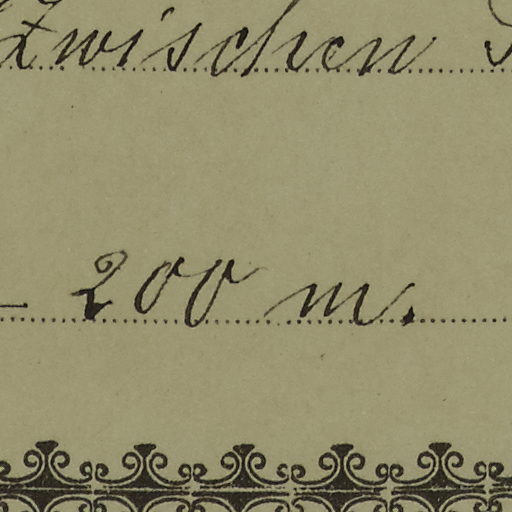 Zwischen
– 200 m.